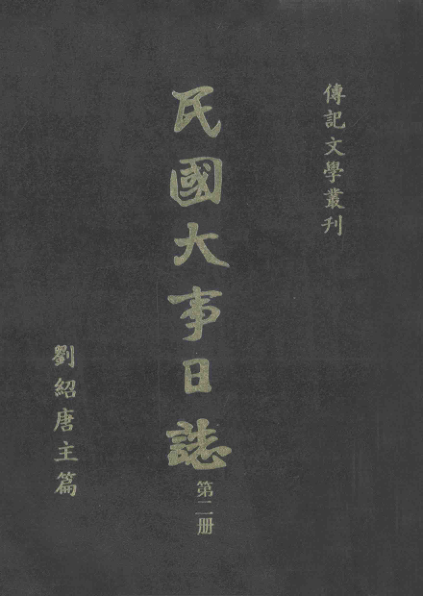 傳記文學叢刊
民國大事日誌
第二册
劉紹唐主篇